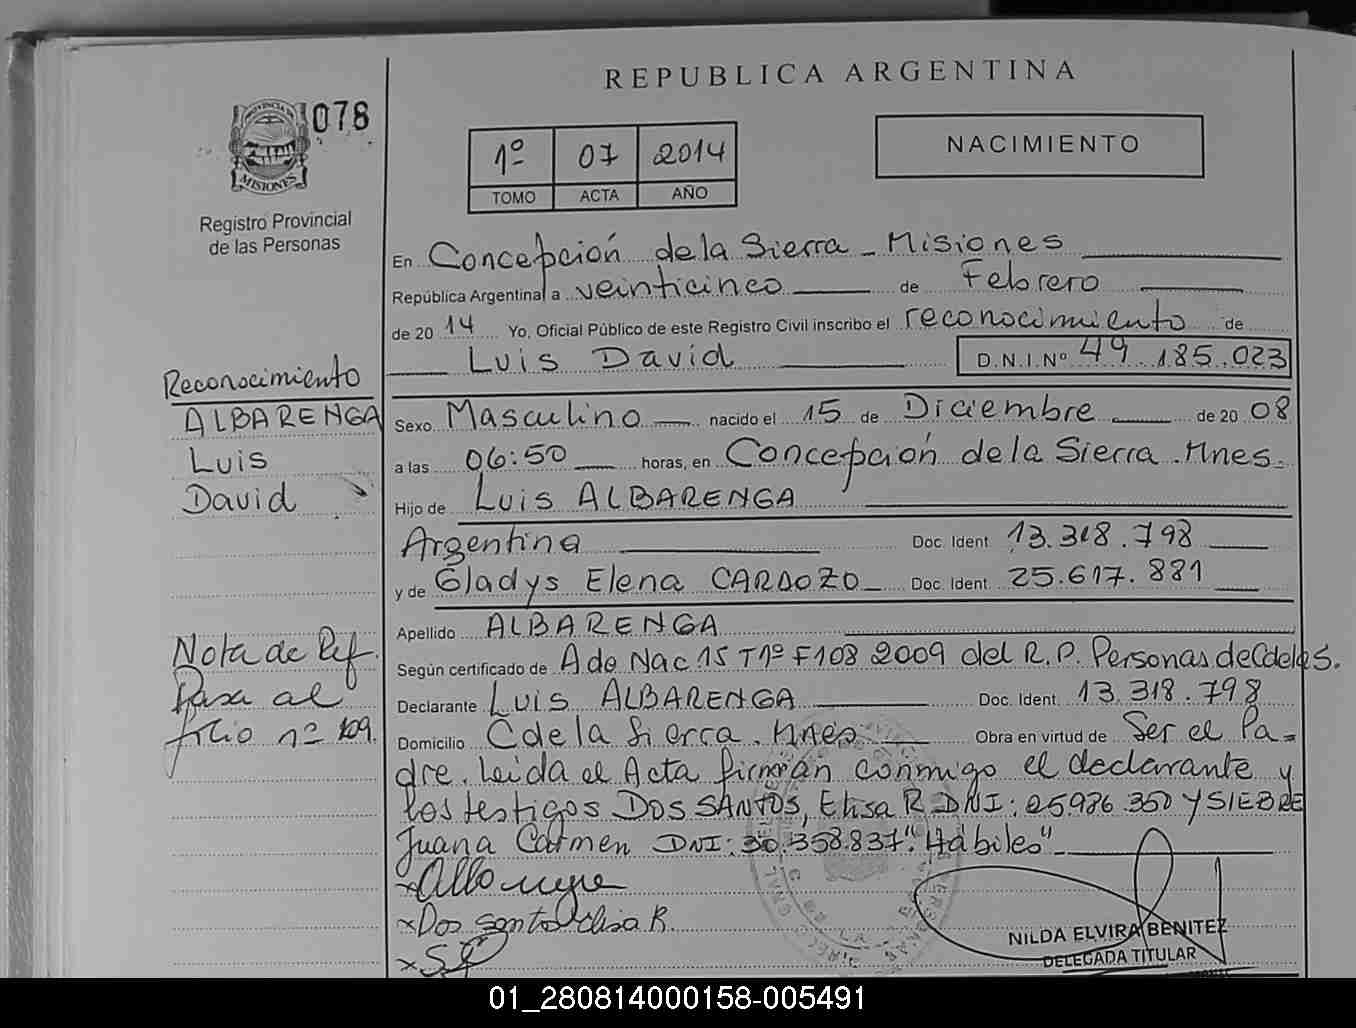 REPUBLICA ARGENTINA
078
PROVINCIA DE
MISIONES
Registro Provincial
de las Personas
1º 07 2014
TOMO ACTA AÑO
NACIMIENTO
En Concepción de la Sierra - Misiones
República Argentina a veinticinco de Febrero
de 2014 Yo, Oficial Público de este Registro Civil inscribo el reconocimiento de
Luis David D.N.I.Nº 49.185.023
Reconocimiento
ALBARENGA
Luis
David
Sexo Masculino nacido el 15 de Diciembre de 2008
a las 06:50 horas, en Concepción de la Sierra. Mnes.
Hijo de Luis ALBARENGA
Argentina Doc. Ident. 13.318.798
y de Gladys Elena CARDOZO Doc. Ident. 25.617.881
Apellido ALBARENGA
Nota de Ref.
Pasa al
folio nº 109.
Según certificado de A de Nac 15 Tº 1º F 108 2009 del R.P. Personas de C de la S.
Declarante Luis ALBARENGA Doc. Ident. 13.318.798
Domicilio C de la Sierra. Mnes Obra en virtud de Ser el Pa-
dre. Leida el Acta firman conmigo el declarante y
los testigos DOS SANTOS, Elisa R DNI: 25.986.350 Y SIEBRE
Juana Carmen DNI: 30.358.837. "Hábiles"
x Dos santos elisa R.
NILDA ELVIRA BENITEZ
DELEGADA TITULAR
01_280814000158-005491